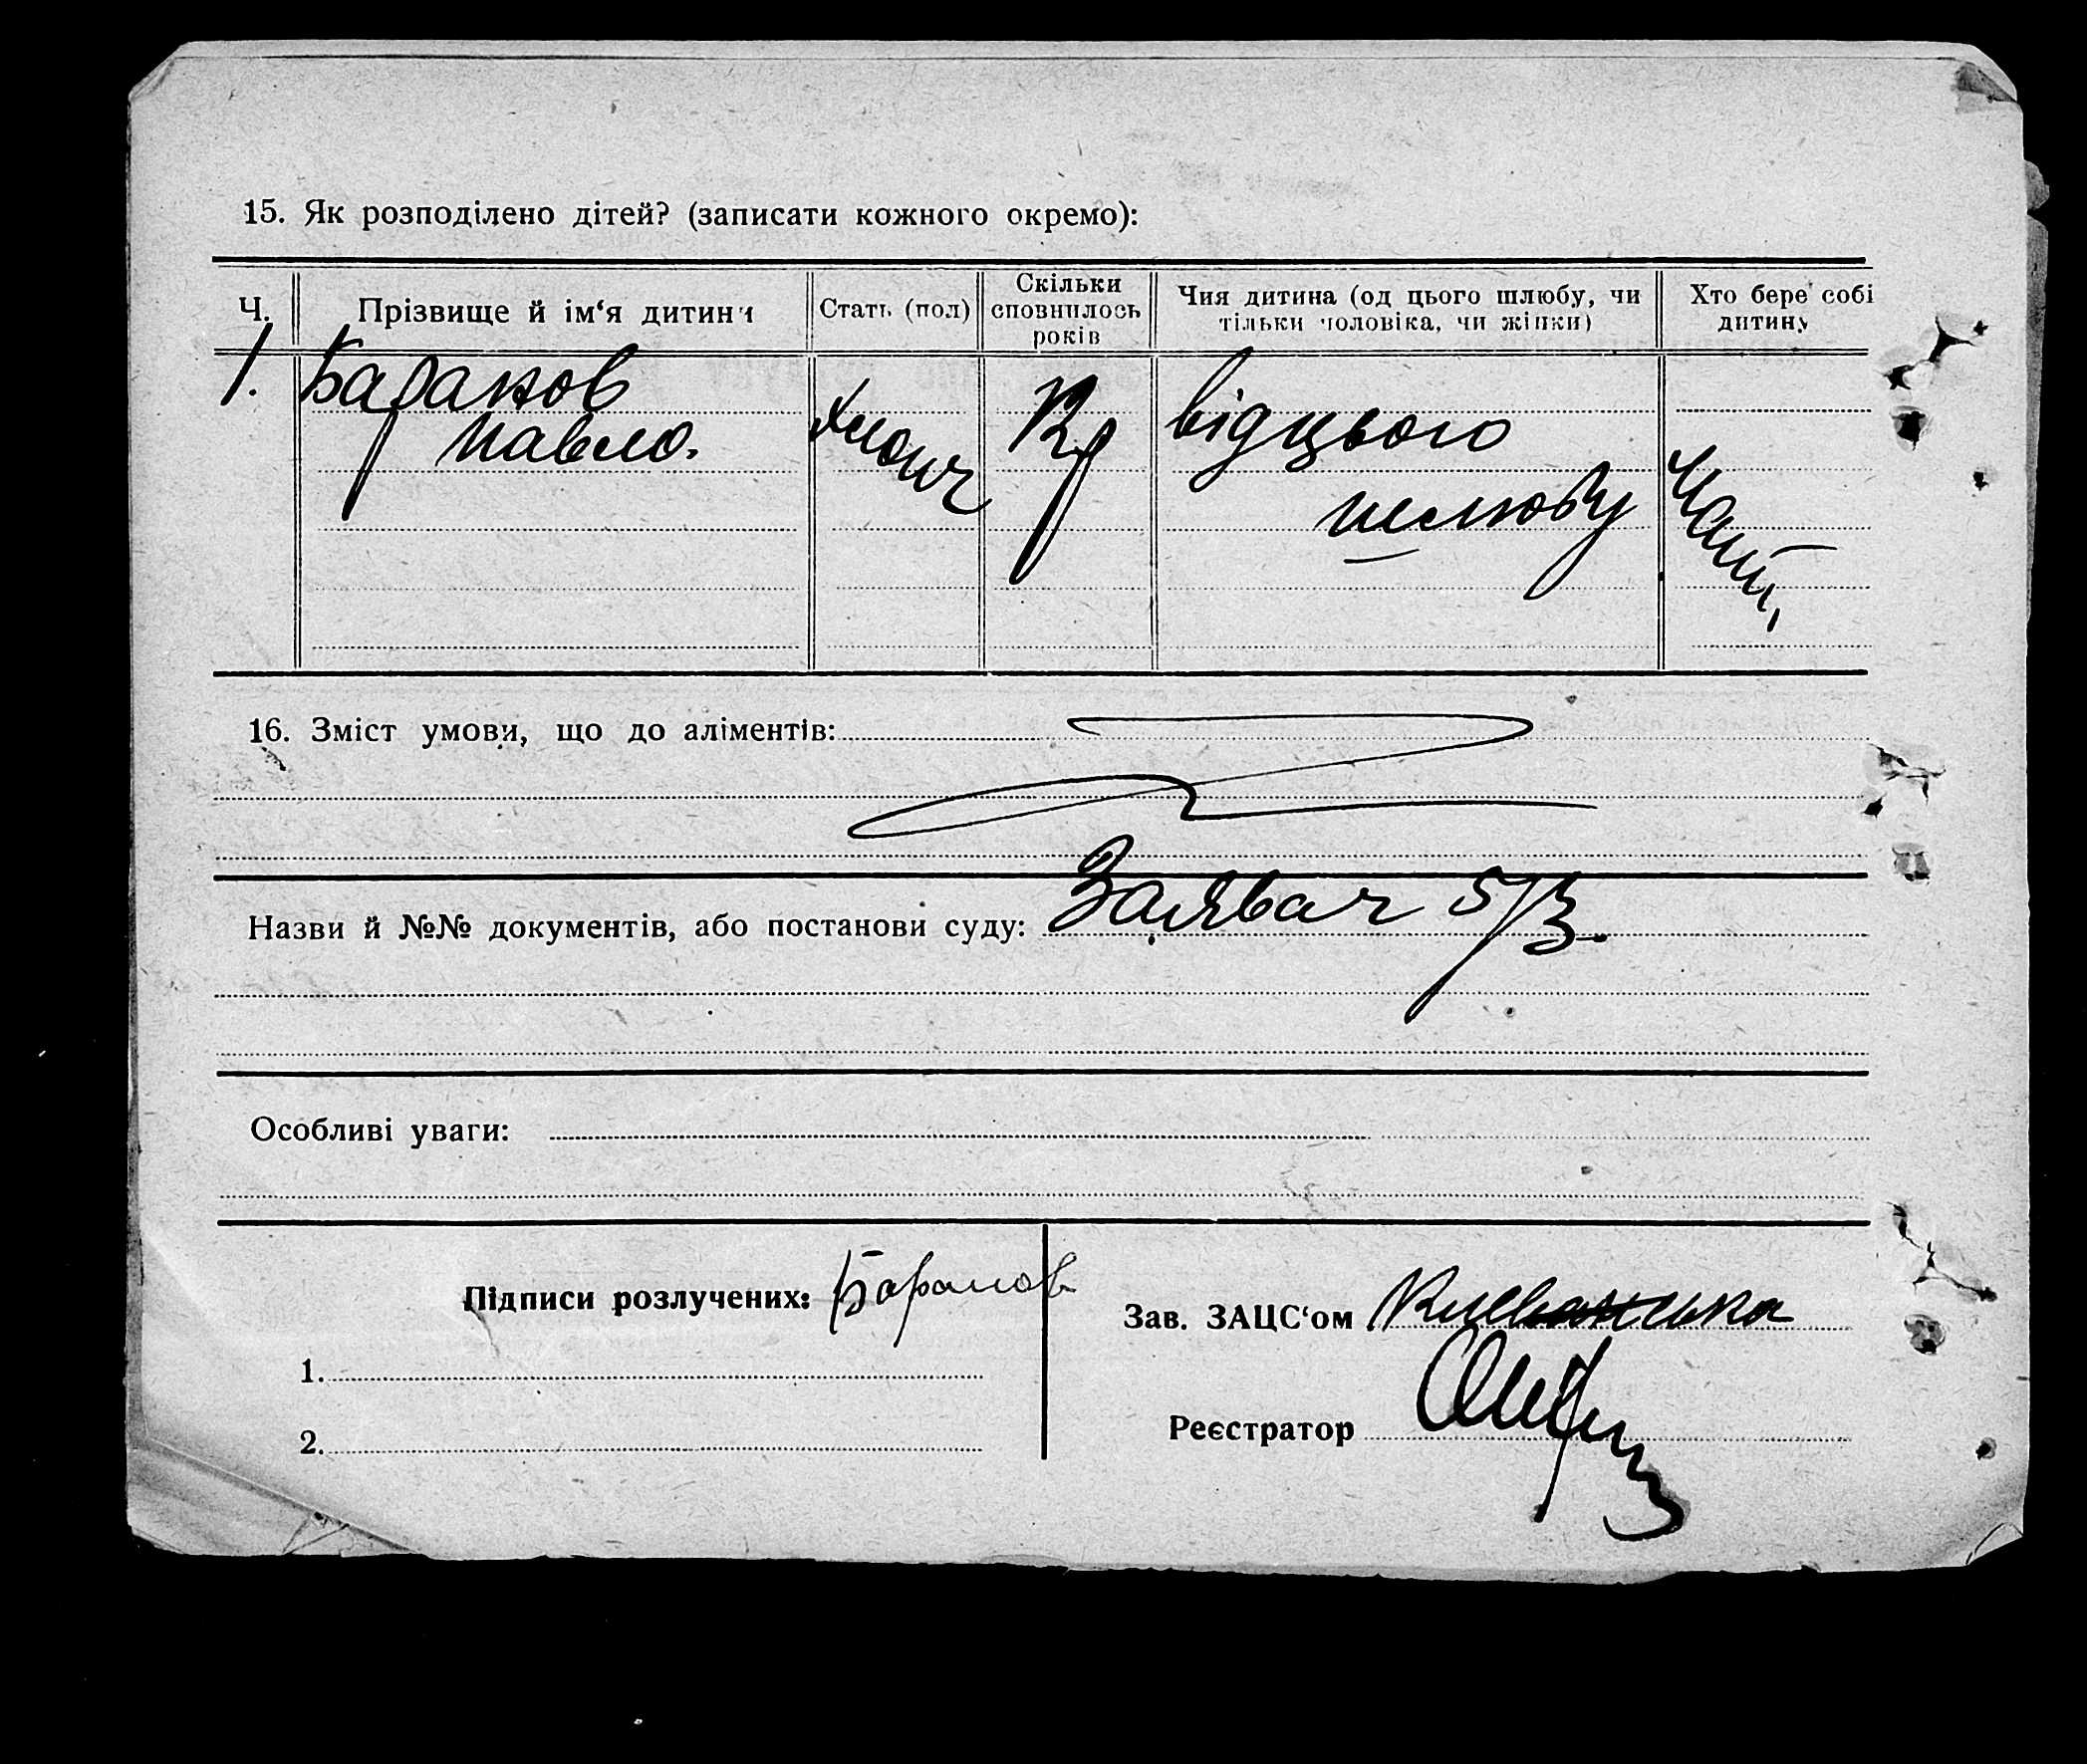 15. Як розподілено дітей? (записати кожного окремо):
Ч.
Прізвище й ім‘я дитини
Стать (пол)
Скільки
сповнилось
років
Чия дитина (од цього шлюбу, чи
тільки чоловіка, чи жінки)
Хто бере собі
дитину
1.
Баранов
Павло.
хлопч
12 р
від цього
шлюбу
Мати,
16. Зміст умови, що до аліментів:
Назви й №№ документів, або постанови суду: Заявач 5/3.
Особливі уваги:
Підписи розлучених: Баранов
1.
2.
Зав. ЗАЦС‘ом
Реєстратор